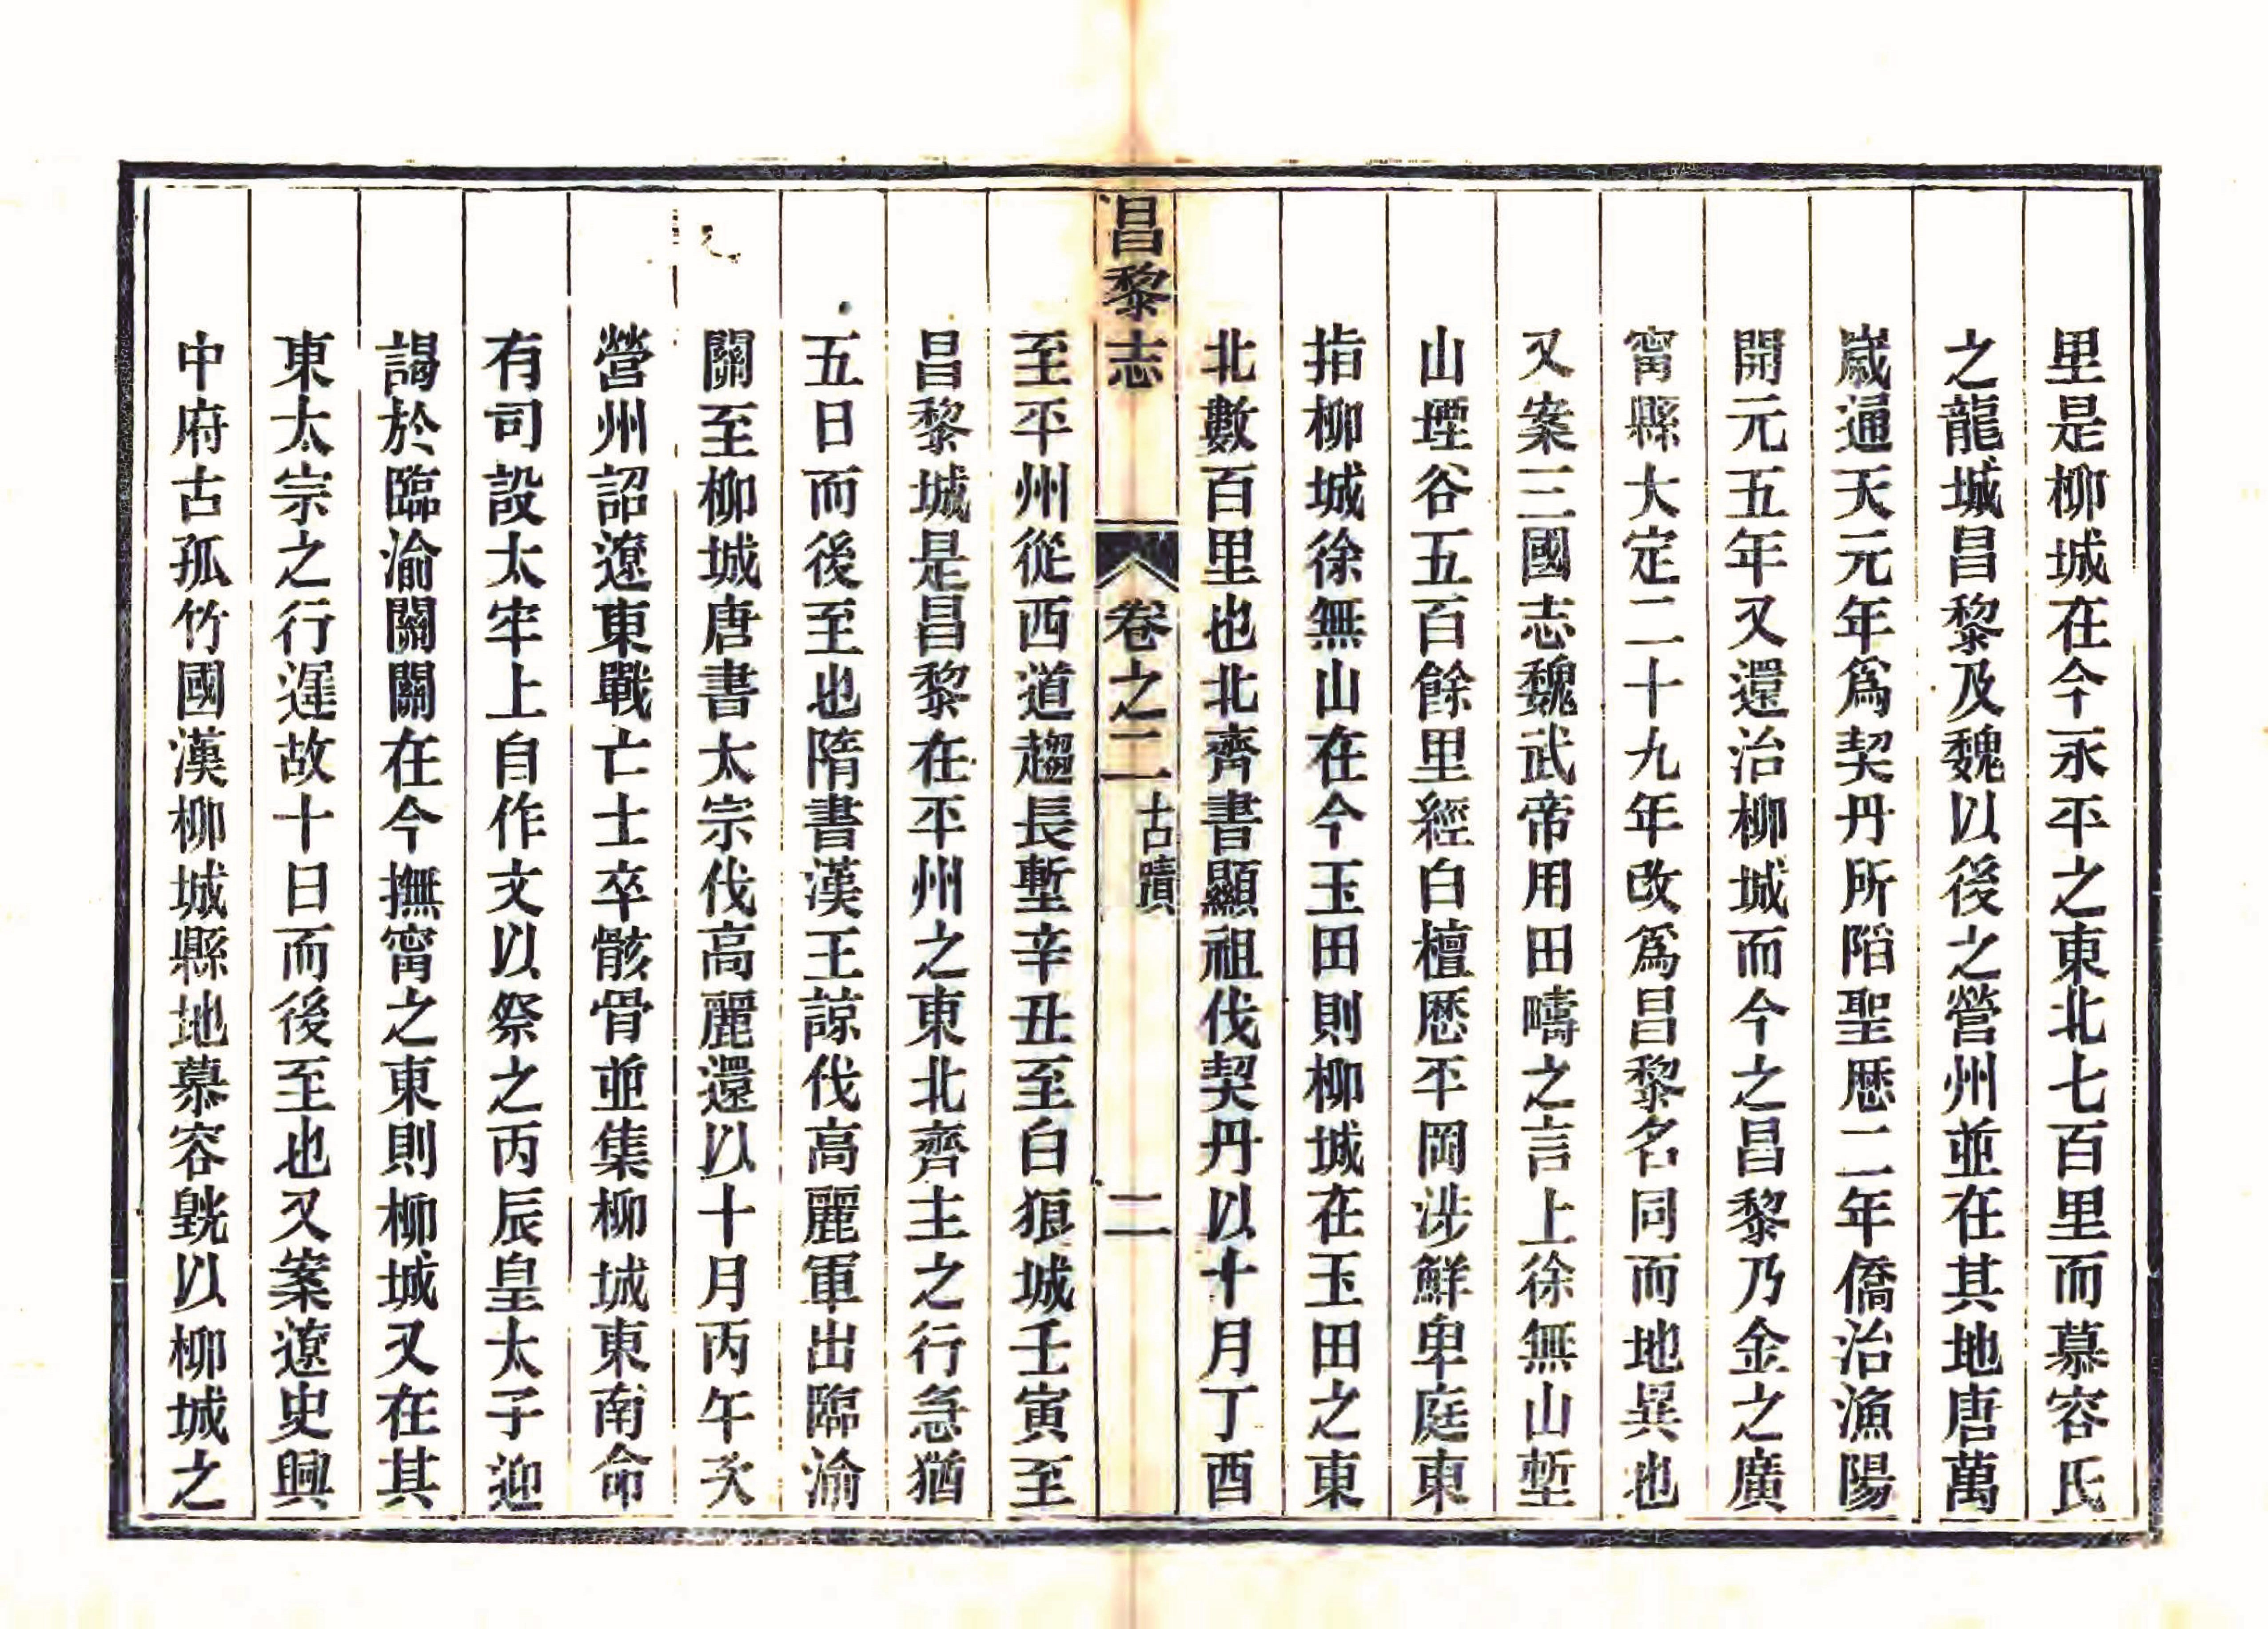 里是柳城在今永平之東北七百里而慕容氏
之龍城昌黎及魏以後之營州並在其地唐萬
嵗通天元年爲契丹所䧟聖厯二年僑治漁陽
開元五年又還治柳城而今之昌黎乃金之廣
甯縣大定二十九年改爲昌黎名同而地異也
又案三國志魏武帝用田疇之言上徐無山塹
山堙谷五百餘里經白檀厯平岡涉鮮卑庭東
指柳城徐無山在今玉田則柳城在玉田之東
北數百里也北齊書顯祖伐契丹以十月丁酉
昌黎志
卷之二
古蹟
二
至平州從西道趨長塹辛丑至白狼城壬寅至
昌黎城是昌黎在平州之東北齊主之行急猶
五日而後至也隋書漢王諒伐高麗軍出臨渝
關至柳城唐書太宗伐高麗還以十月丙午次
營州詔遼東戰亡士卒骸骨並集柳城東南命
有司設太牢上自作文以祭之丙辰皇太子迎
謁於臨渝關關在今撫甯之東則柳城又在其
東太宗之行遲故十日而後至也又案遼史興
中府古孤竹國漢柳城縣地慕容皝以柳城之